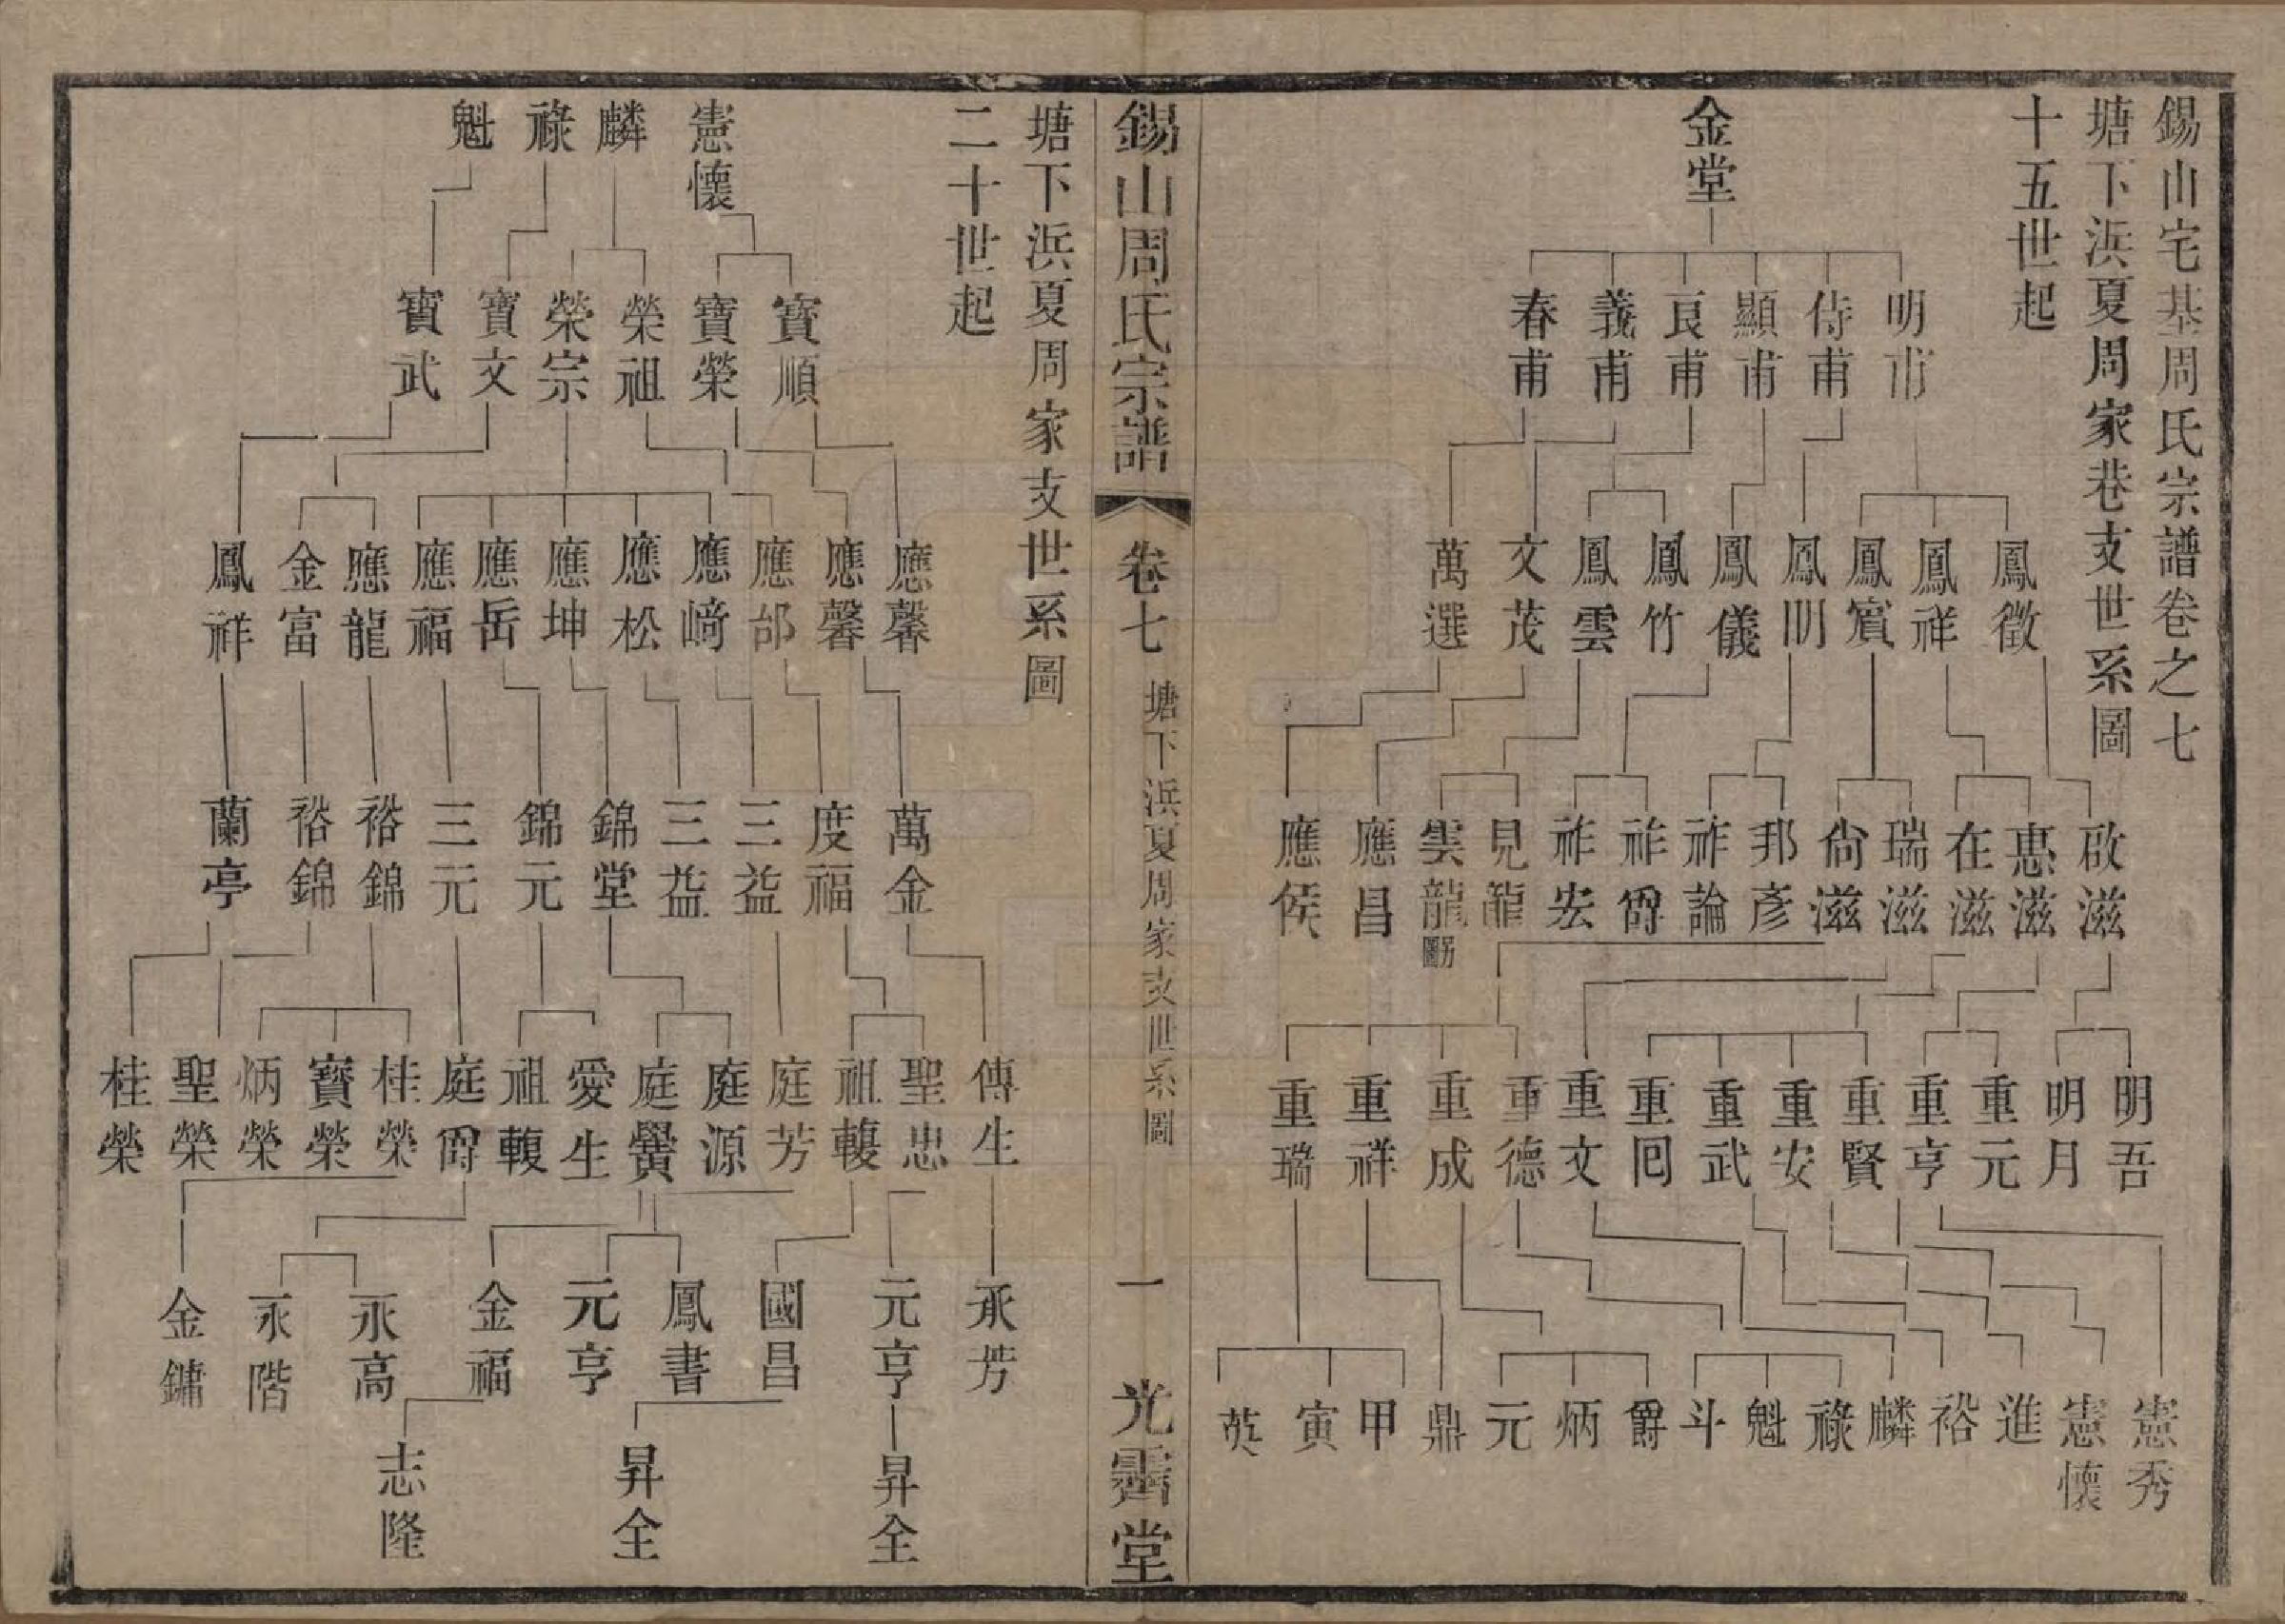 錫山宅基周氏宗譜卷之七
塘下浜夏周家巷支世系圖
十五世起
金堂
明甫
侍甫
顯甫
良甫
義甫
春甫
鳳徵
鳳祥
鳳賓
鳳明
鳳儀
鳳竹
鳳雲
文茂
萬選
啟滋
惠滋
在滋
瑞滋
尙滋
邦彥
祚論
祚爵
祚宏
見龍
雲龍
應昌
應侯
明吾
明月
重元
重亨
重賢
重安
重武
重囘
重文
重德
重成
重祥
重瑞
憲秀
憲懷
進
裕
麟
祿
魁
斗
爵
炳
元
鼎
甲
寅
英
錫山周氏宗譜
卷七
塘下浜夏周家支世系圖
一
光霽堂
塘下浜夏周家支世系圖
二十世起
憲懷
麟
祿
魁
寶順
寶榮
榮祖
榮宗
寶文
寶武
應馨
應馨
應邰
應﨑
應松
應坤
應岳
應福
應龍
金富
鳳祥
萬金
度福
三益
三益
錦堂
錦元
三元
裕錦
裕錦
蘭亭
傳生
聖忠
祖轅
庭芳
庭源
庭黌
愛生
祖轅
庭爵
桂榮
寶榮
炳榮
聖榮
桂榮
承芳
元亨
國昌
鳳書
元亨
金福
永高
永階
金鏞
昇全
昇全
志隆